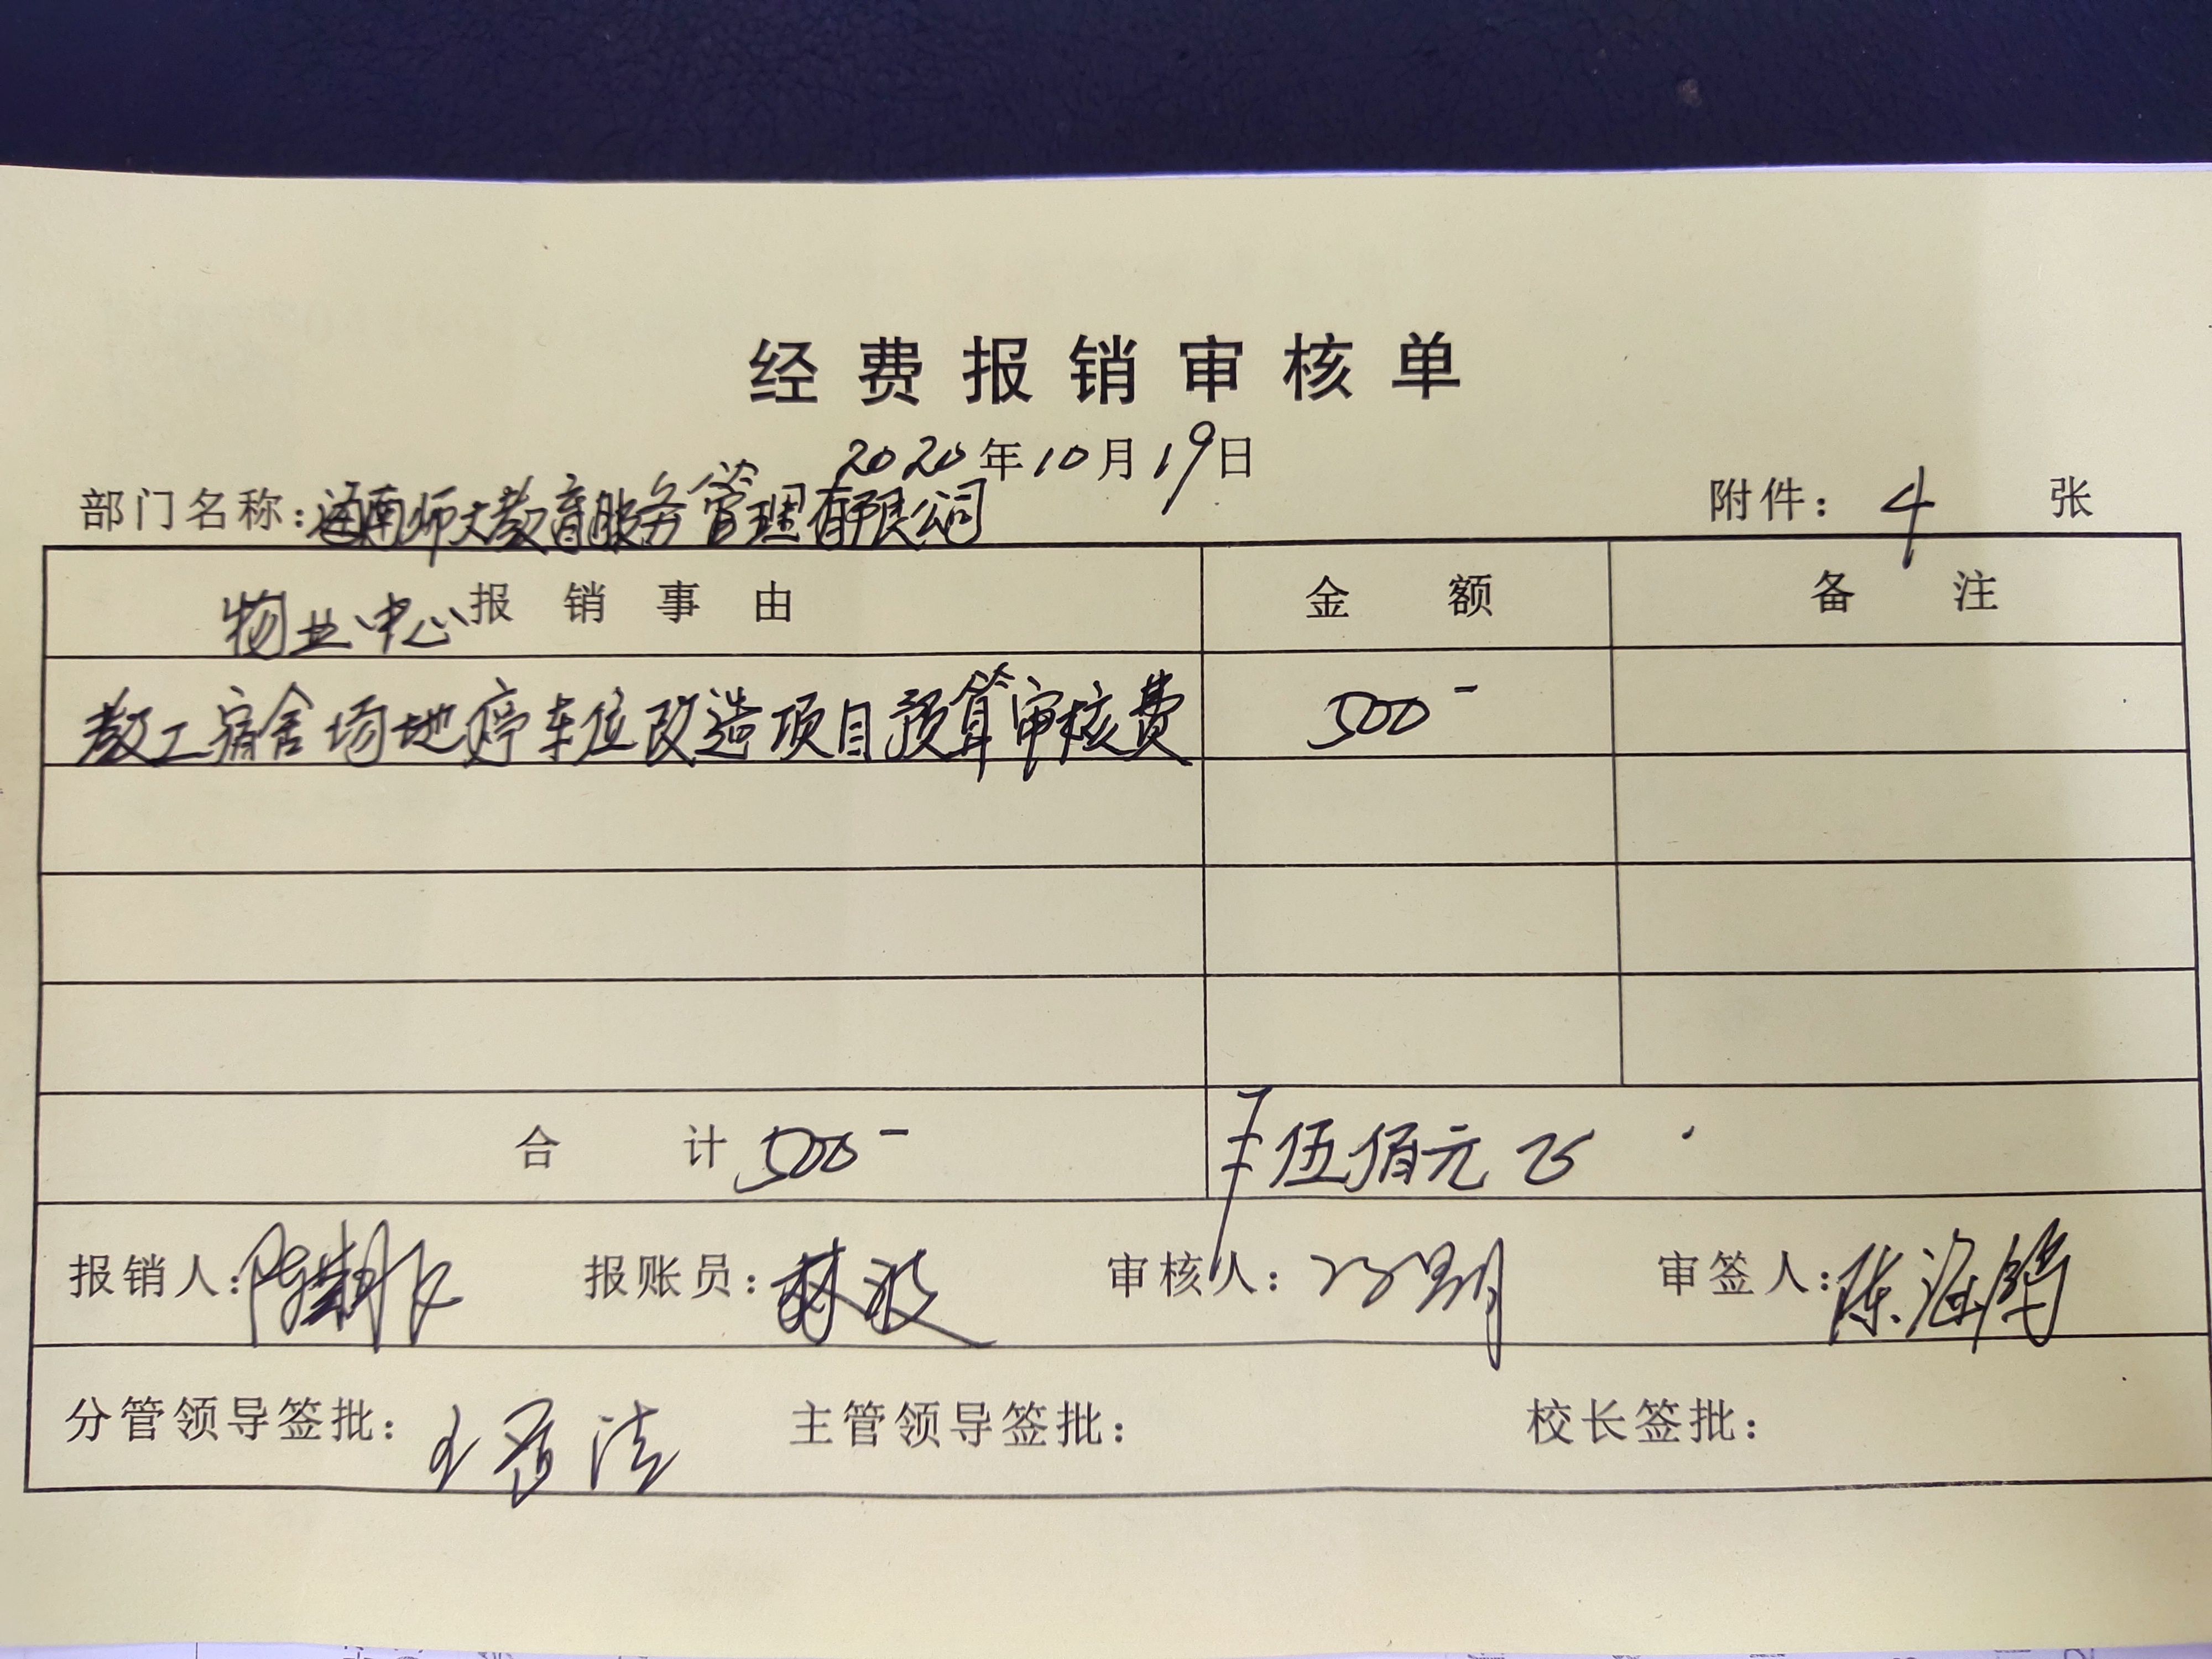 经费报销审核单
2020年10月19日
部门名称:海南师大教育服务管理有限公司 附件: 4 张
物业中心 报销事由 金额 备注
教工宿舍场地停车位改造项目预算审核费 500-
合计 500- 伍佰元正
报销人: 报账员: 林波 审核人: 审签人: 陈海鸿
分管领导签批: 主管领导签批: 校长签批: